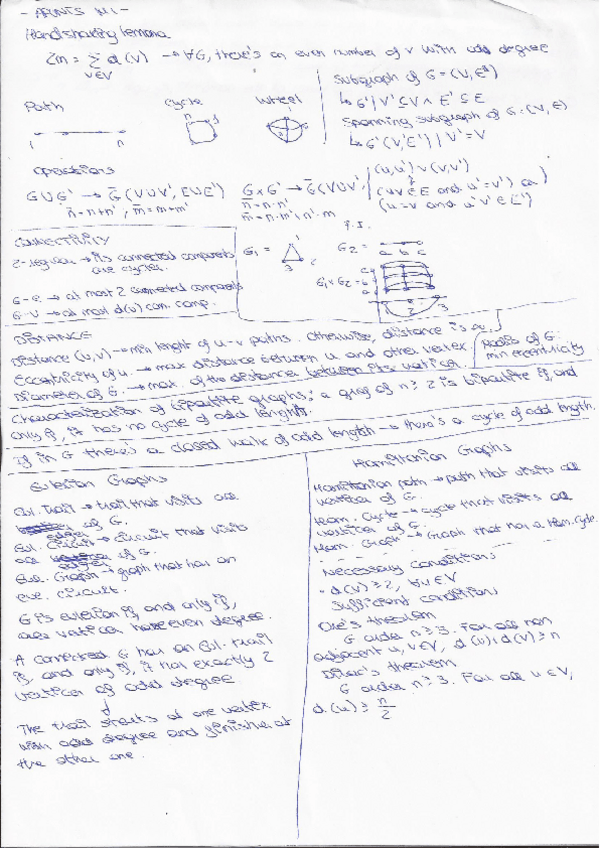 - APUNTS M1 -
Handshaking lemma
2m = Σ d(v) → ∀G, there's an even number of v with odd degree
v∈V
Path
Cycle
Wheel
1 n
n 1
Subgraph of G = (V, E)
↳ G' | V' ⊆ V ∧ E' ⊆ E
Spanning subgraph of G = (V, E)
↳ G'(V', E') | V' = V
Operations
G∪G' → G̅ (V∪V', E∪E')
n̅ = n+n' ; m̅ = m+m'
G×G' → G̅ (V×V',
n̅ = n·n'
m̅ = n·m'+n'·m
(u,u') ~ (v,v')
(uv∈E and u'=v') or
(u=v and u'v'∈E')
CONNECTIVITY
2-regular → its connected components
are cycles.
G-e → at most 2 connected components
G-v → at most d(v) con. comp.
G1 =
1
3 2
G2 =
a b c
G1×G2 =
c
b
a
1 2 3
DISTANCE
Distance (u,v) → min lenght of u-v paths. Otherwise, distance is ∞.
Eccentricity of u → max distance between u and other vertex
Diameter of G. → max. of the distance between its vertices
Radius of G:
min eccentricity
Characterization of bipartite graphs: a graf of n≥2 is bipartite if and
only if, it has no cycle of odd lenght.
if in G there's a closed walk of odd length → there's a cycle of odd length.
Eulerian Graphs
Eul. Trail → trail that visits all
edges of G.
Eul. Circuit → circuit that visits
all edges of G.
Eul. Graph → graph that has an
eul. circuit.
G is eulerian if, and only if,
all vertices have even degree.
A connected G has an Eul. trail
if, and only if, it has exactly 2
vertices of odd degree
↓
The trail starts at one vertex
with odd degree and finishes at
the other one.
Hamiltonian Graphs
Hamiltonian path → path that visits all
vertices of G.
Ham. Cycle → cycle that visits all
vertices of G.
Ham. Graph → Graph that has a Ham. cycle.
Necessary conditions
· d(v) ≥ 2, ∀v∈V
Sufficient conditions
Ore's theorem
G order n ≥ 3. For all non
adjacent u, v∈V, d(u)+d(v) ≥ n
Dirac's theorem
G order n ≥ 3. For all u∈V,
d(u) ≥ n/2